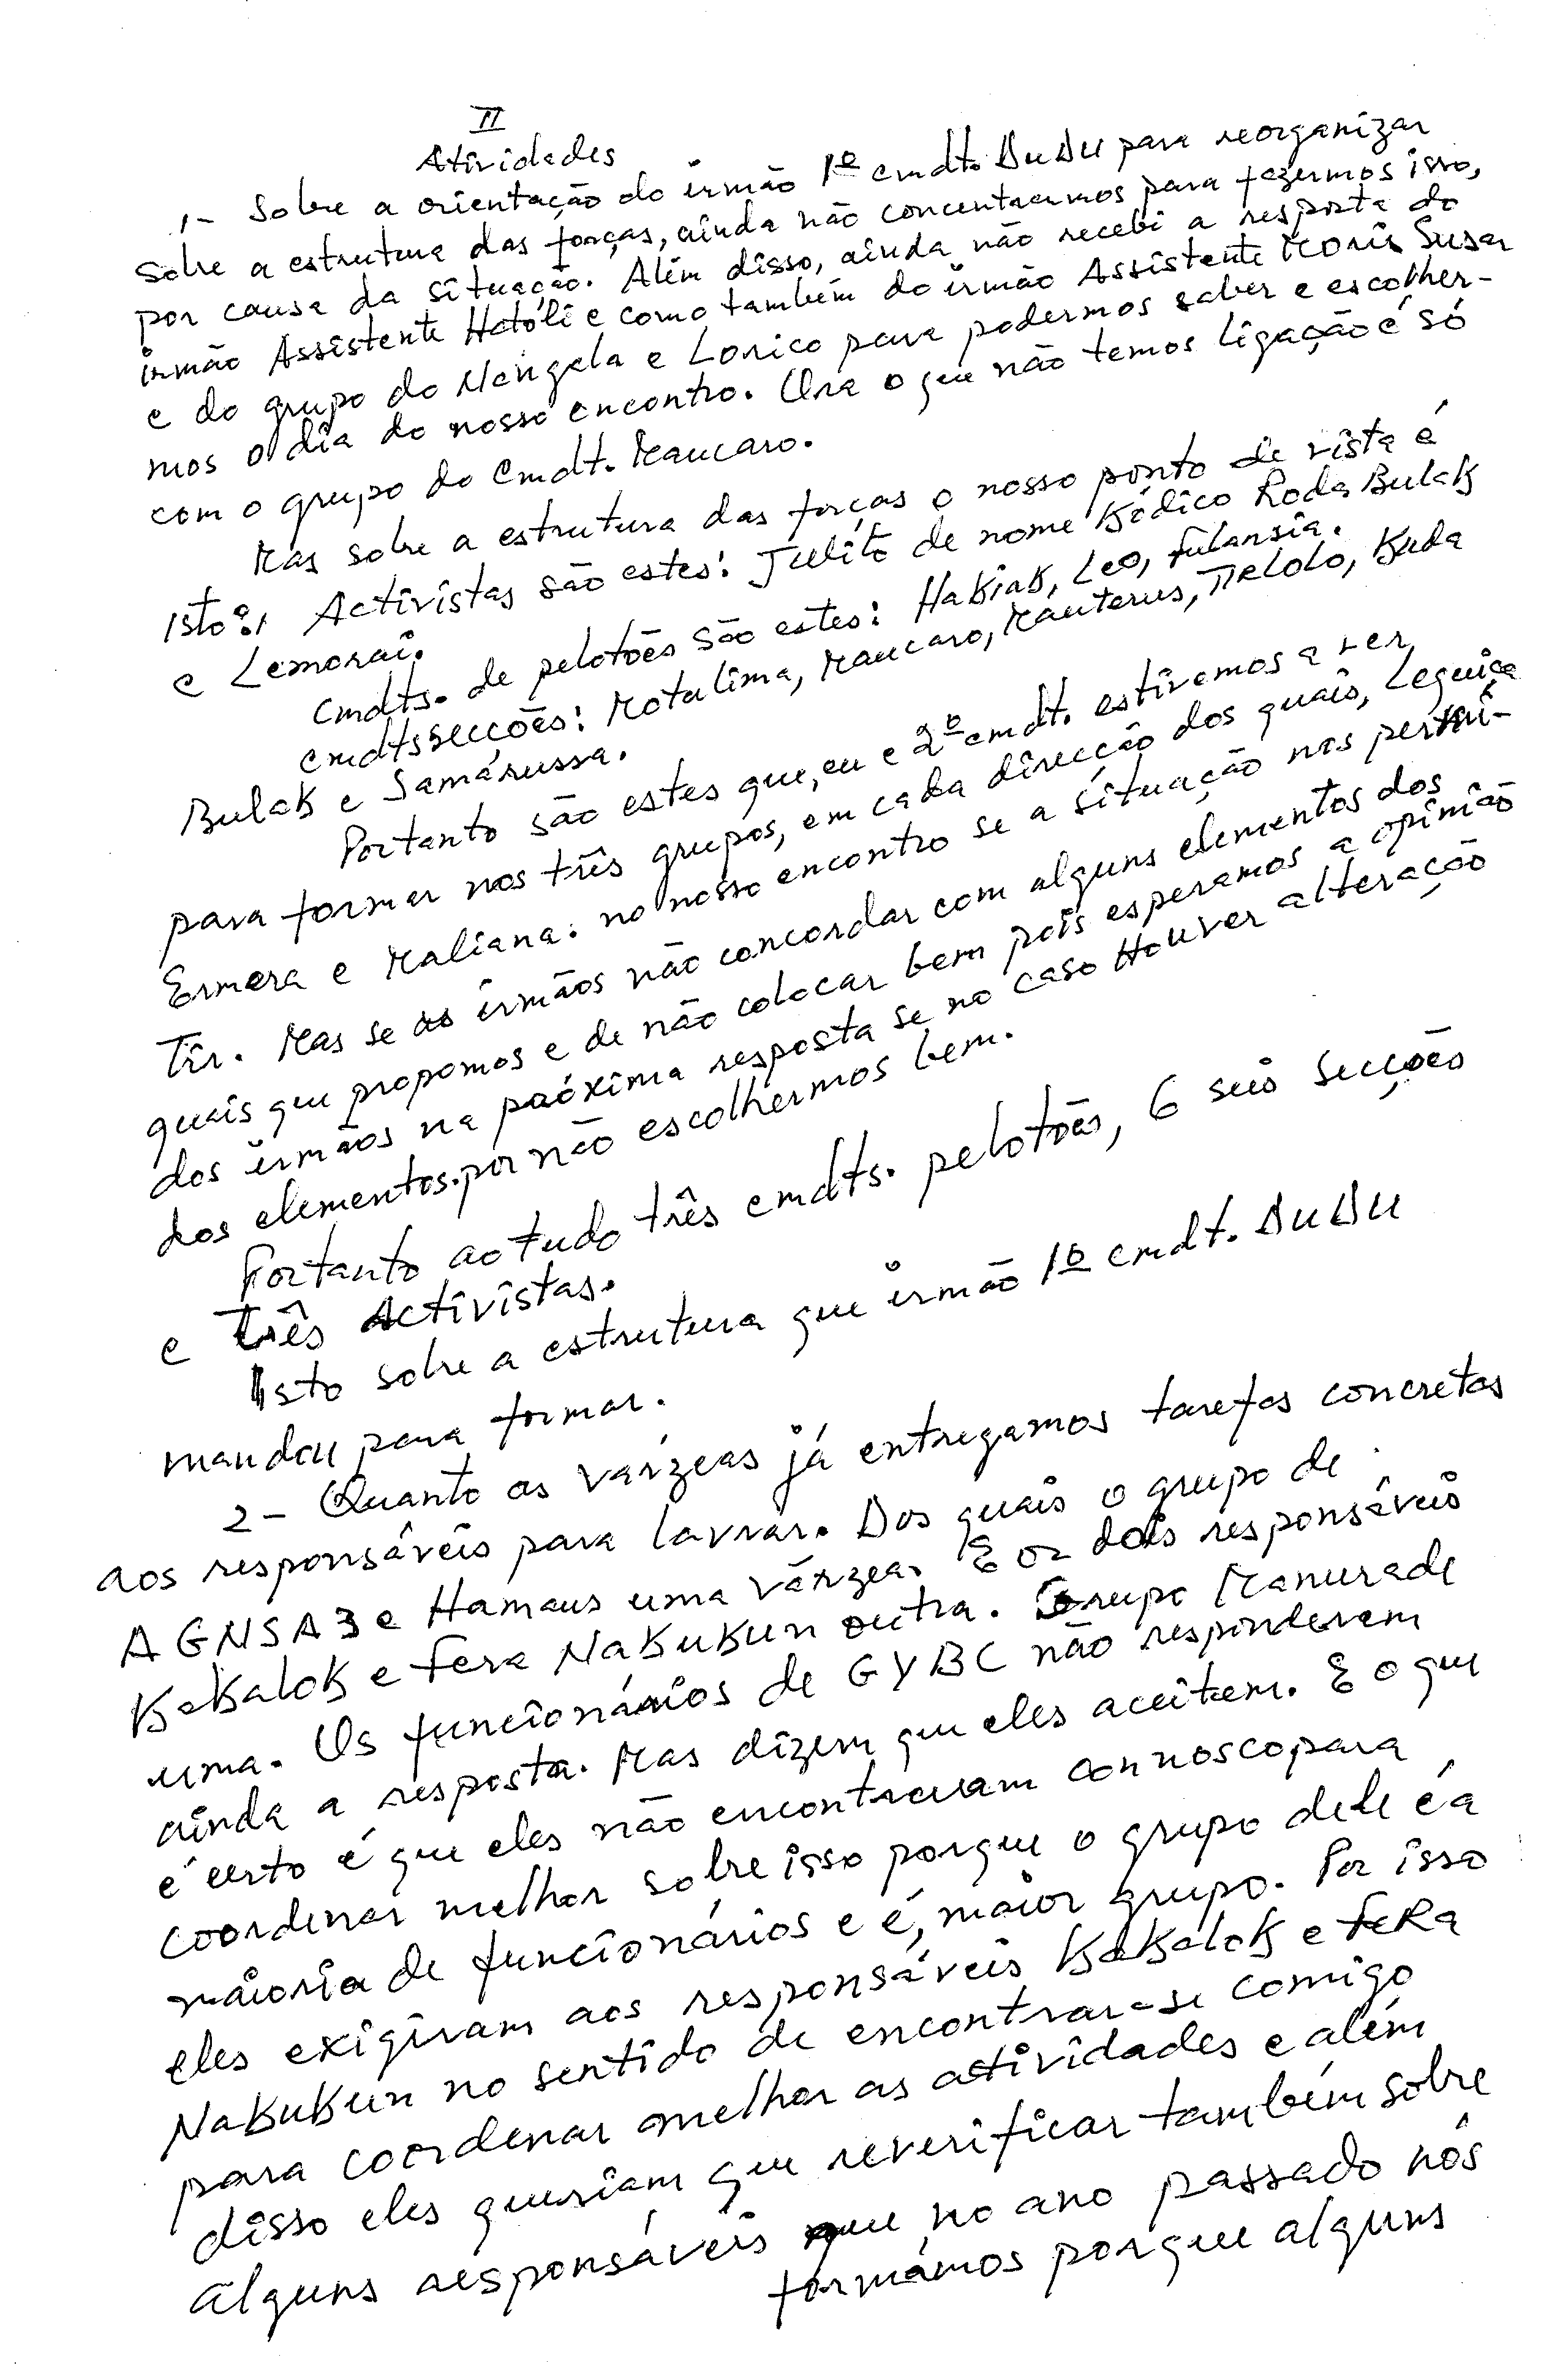 II
Atividades
1- Sobre a orientação do irmão 1º cmdt. DUDU para reorganizar
sobre a estrutura das forças, ainda não concentrarmos para fazermos isso,
por causa da situação. Além disso, ainda não recebi a resposta do
irmão Assistente Hatóli e como também do irmão Assistente Moris Susar
e do grupo do Mengela e Lorico para podermos saber e escolher-
mos o dia do nosso encontro. Ora o que não temos ligação é só
com o grupo do Cmdt. Maucaro.
Mas sobre a estrutura das forças o nosso ponto de vista é
isto: Activistas são estes: Julito de nome Kódico Roda Bulak
e Lemorai.
Cmdts. de pelotões são estes: Hakiak, Leo, Fulansia.
cmdts secções: Motalima, Maucaro, Mauterus, Tirlolo, Kuda
Bulak e Samárussa.
Portanto são estes que, eu e 2º cmdt. estivemos a ver
para formar nos três grupos, em cada direcção dos quais, Leguiça
Ermera e Maliana: no nosso encontro se a situação nos permi-
tir. Mas se os irmãos não concordar com alguns elementos dos
quais que propomos e de não colocar bem pois esperamos a opinião
dos irmãos na próxima resposta se no caso Houver alteração
dos elementos. por não escolhermos bem.
Portanto ao tudo três cmdts. pelotões, 6 seis secções
e três Activistas.
Isto sobre a estrutura que irmão 1º cmdt. DUDU
mandou para formar.
2- Quanto as varzeas já entregamos tarefas concretas
aos responsáveis para lavrar. Dos quais o grupo de
AGNSA3 e Hamaus uma várzea. E os dois responsáveis
Kakalok e Fera Nakukun outra. Grupo Manurade
uma. Os funcionários de GYBC não responderam
ainda a resposta. Mas dizem que eles aceitem. E o que
é certo é que eles não encontravam connosco para
coordenar melhor sobre isso porque o grupo dele é a
maioria de funcionários e é, maior grupo. Por isso
eles exigiram aos responsáveis Kakalok e Fera
Nakukun no sentido de encontrar-se comigo
para coordenar melhor as atividades e além
disso eles queriam que reverificar também sobre
alguns responsáveis que no ano passado nós
formámos porque alguns